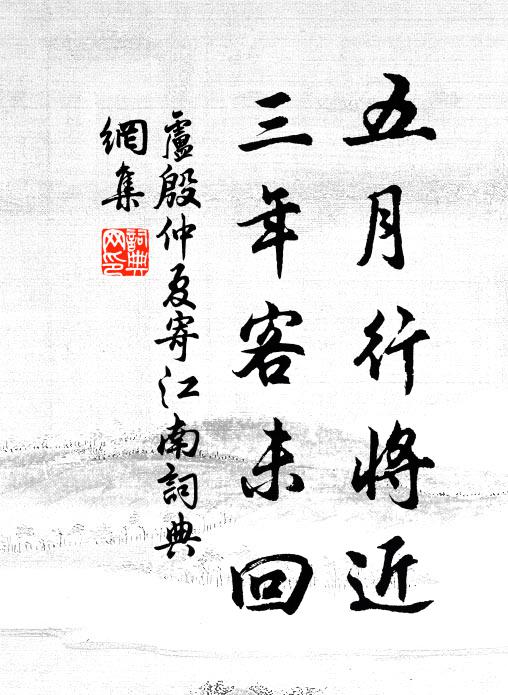 五月行将近
三年客未回
盧殷仲夏寄江南詞典
網集
詞典
网印